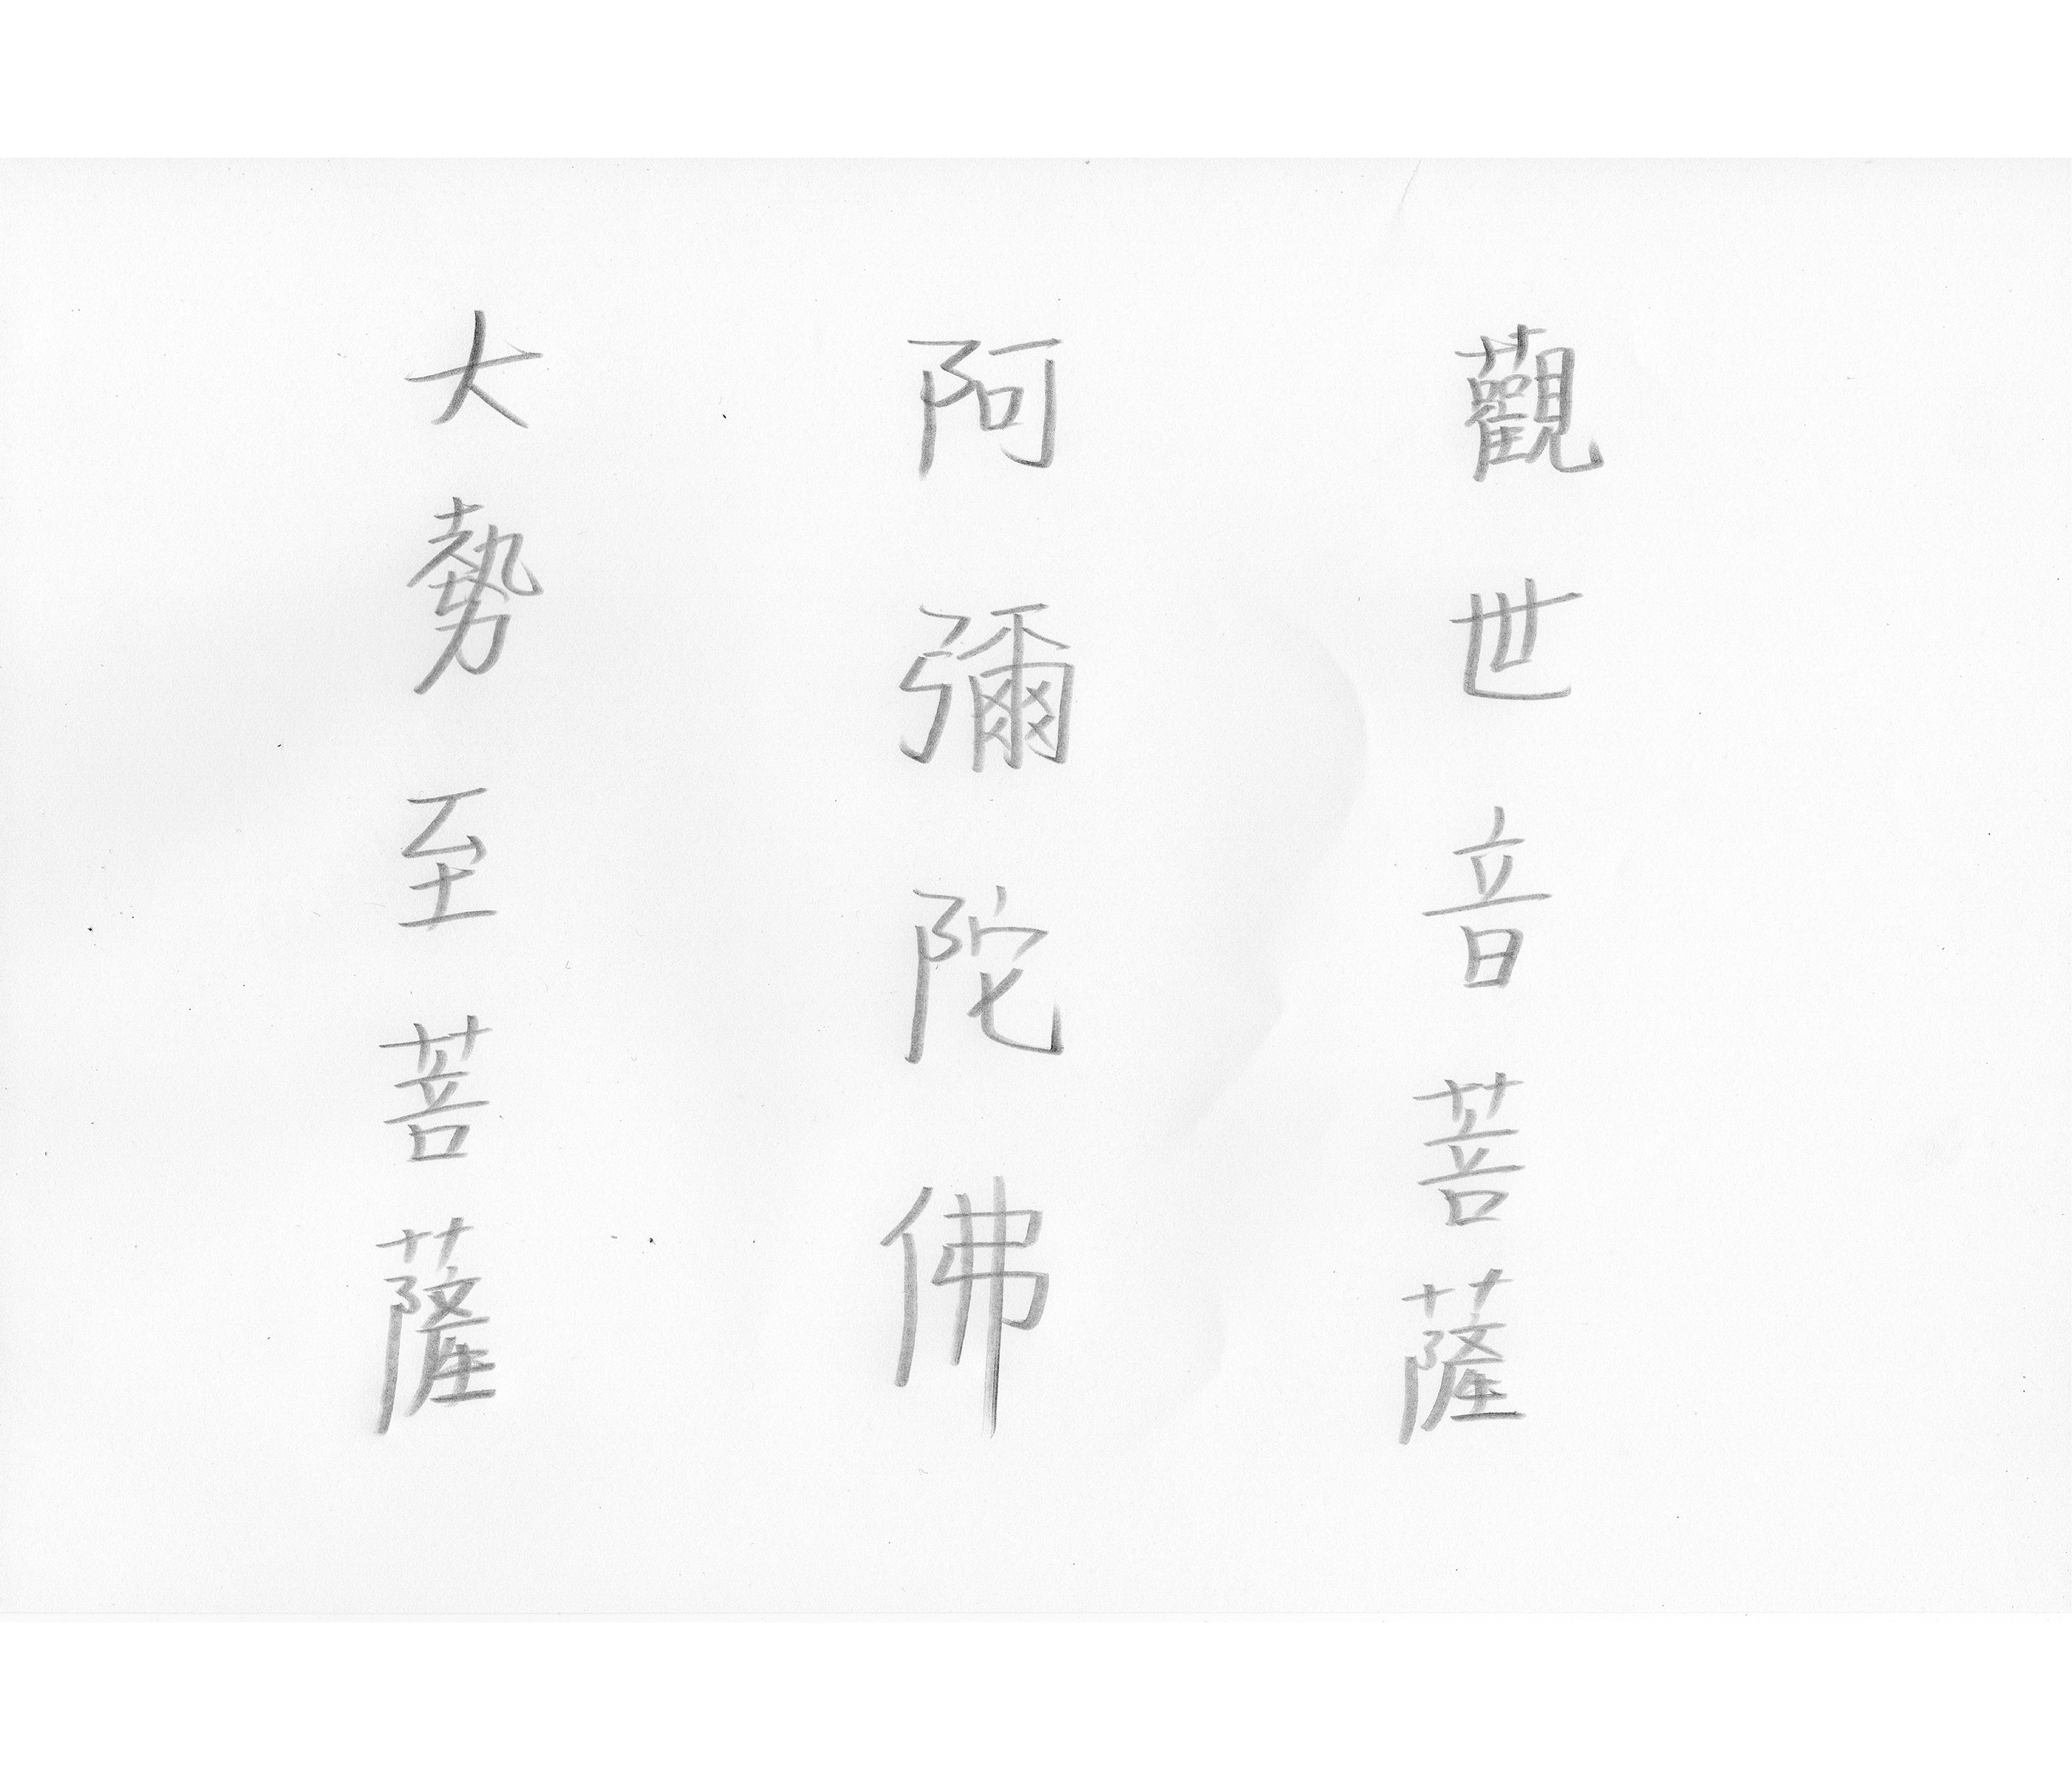 觀世音菩薩
阿彌陀佛
大勢至菩薩